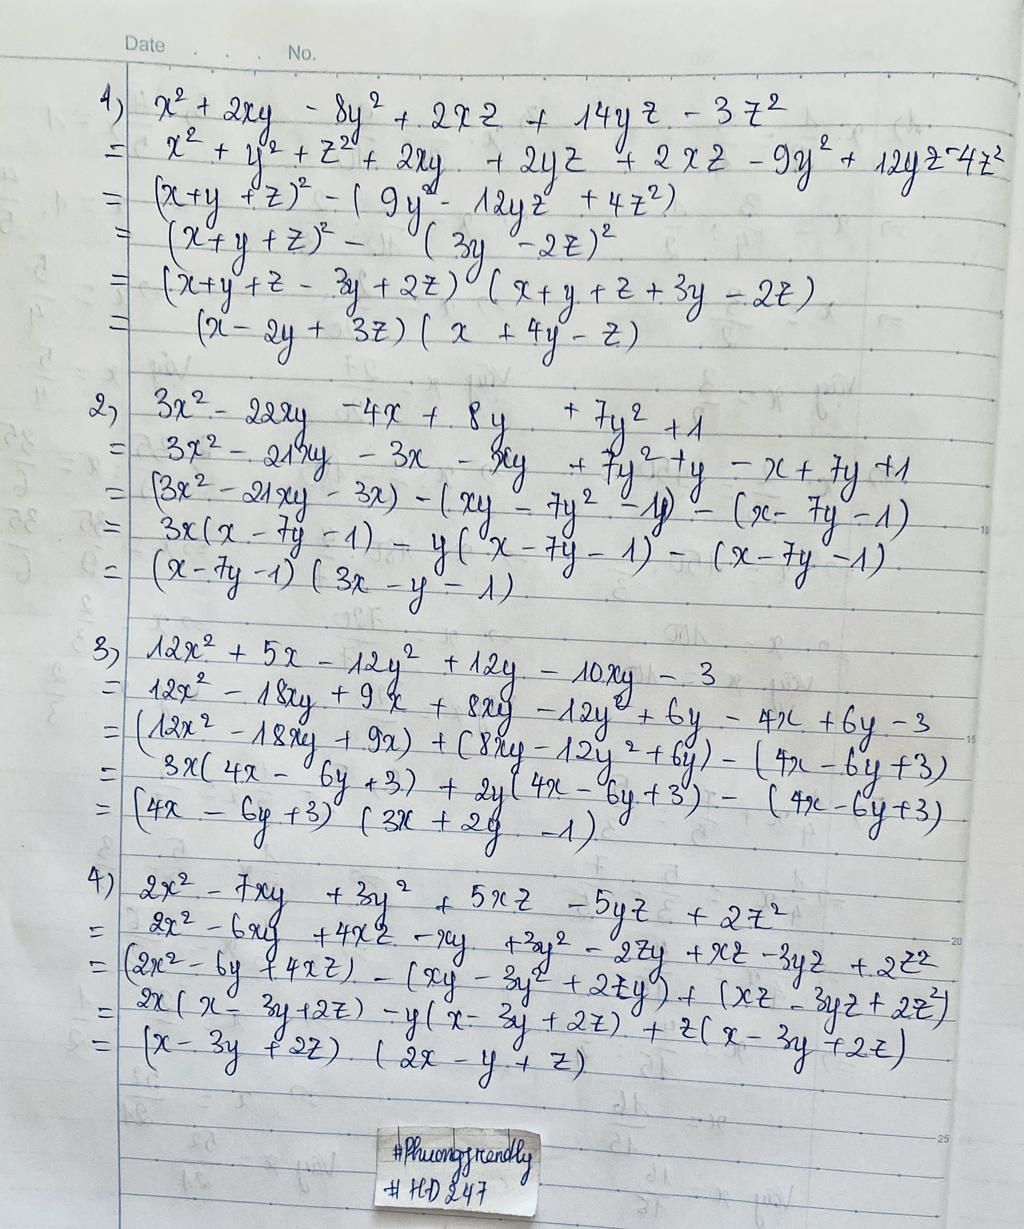 Date . . . No.
1) x² + 2xy - 8y² + 2xz + 14yz - 3z²
= x² + y² + z² + 2xy + 2yz + 2xz - 9y² + 12yz - 4z²
= (x+y+z)² - (9y² - 12yz + 4z²)
= (x+y+z)² - (3y - 2z)²
= (x+y+z - 3y + 2z) (x+y+z+3y - 2z)
= (x - 2y + 3z) (x + 4y - z)
2) 3x² - 22xy - 4x + 8y + 7y² + 1
= 3x² - 21xy - 3x - xy + 7y² + y - x + 7y + 1
= (3x² - 21xy - 3x) - (xy - 7y² - 1y) - (x - 7y - 1)
= 3x(x - 7y - 1) - y(x - 7y - 1) - (x - 7y - 1)
= (x - 7y - 1) (3x - y - 1)
3) 12x² + 5x - 12y² + 12y - 10xy - 3
= 12x² - 18xy + 9x + 8xy - 12y² + 6y - 4x + 6y - 3
= (12x² - 18xy + 9x) + (8xy - 12y² + 6y) - (4x - 6y + 3)
= 3x(4x - 6y + 3) + 2y(4x - 6y + 3) - (4x - 6y + 3)
= (4x - 6y + 3) (3x + 2y - 1)
4) 2x² - 7xy + 3y² + 5xz - 5yz + 2z²
= 2x² - 6xy + 4xz - xy + 3y² - 2zy + xz - 3yz + 2z²
= (2x² - 6y + 4xz) - (xy - 3y² + 2zy) + (xz - 3yz + 2z²)
= 2x(x - 3y + 2z) - y(x - 3y + 2z) + z(x - 3y + 2z)
= (x - 3y + 2z) (2x - y + z)
5
10
15
20
25
#Phuongfriendly
#HD247